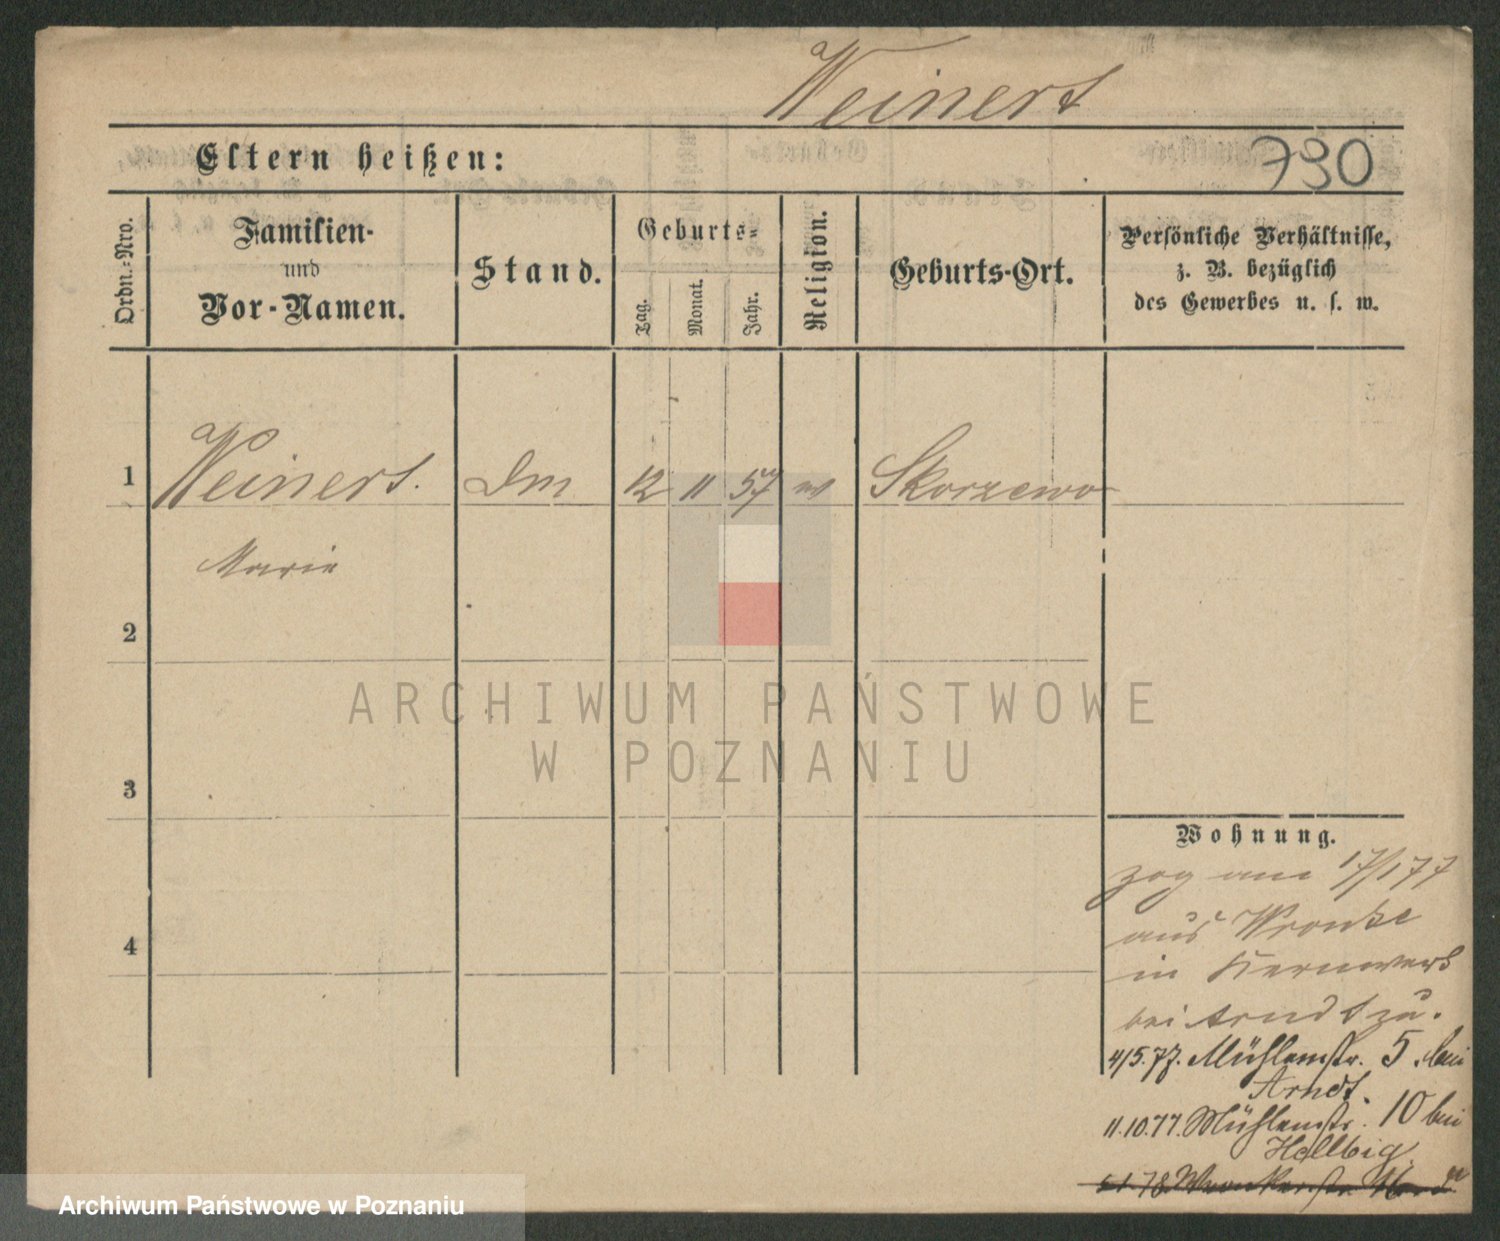 Weinert
Eltern heißen:
790
Ordn.-Nro.
Familien-
und
Vor-Namen.
Stand.
Geburts-
Tag.
Monat.
Jahr.
Religion.
Geburts-Ort.
Persönliche Verhältnisse,
z. B. bezüglich
des Gewerbes u. s. w.
1
Weinert.
Dm
12
11
57
Skorzewo
Marie
2
ARCHIWUM PAŃSTWOWE
W POZNANIU
3
Wohnung.
zog am 17/1 77
aus Wronke
in Kernwerk
bei Arndt zu.
4
4/5.77. Mühlenstr. 5. bei
Arndt.
11.10.77. Mühlenstr. 10 bei
Hellbig.
78 Wronkerstr.
Archiwum Państwowe w Poznaniu